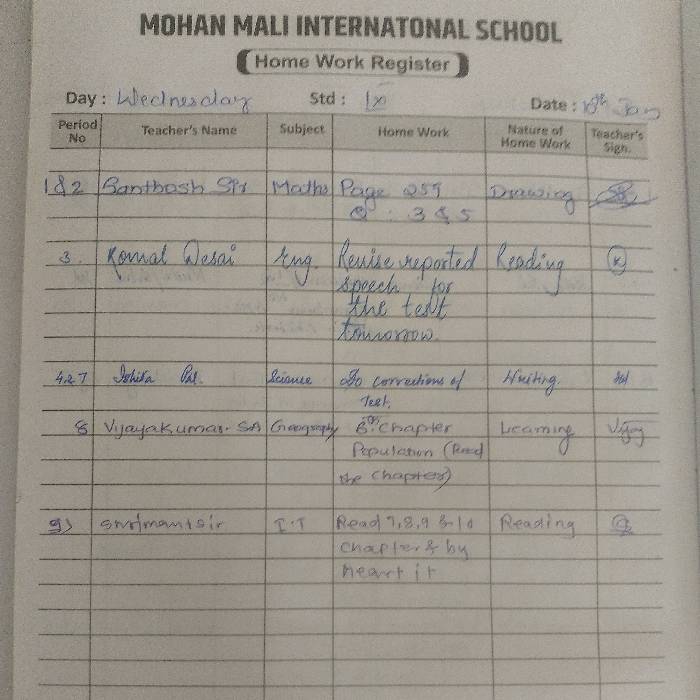 MOHAN MALI INTERNATONAL SCHOOL
Home Work Register
Day : Wednesday Std : IX Date : 10th Jan
Period No Teacher's Name Subject Home Work Nature of Home Work Teacher's Sign.
1&2 Santhosh Sir Maths Page 257 Drawing
Q : 3 & 5
3. Komal Desai Eng. Revise reported Reading
speech for
the test
tomorrow.
4&7 Ishita Pal. Science Do corrections of Writing.
Test.
8 Vijayakumar. S.A Geography 6th Chapter Learning Vijay
Population (Read
the Chapter)
9) I.T Read 7,8,9 & 10 Reading
chapter & by
heart it